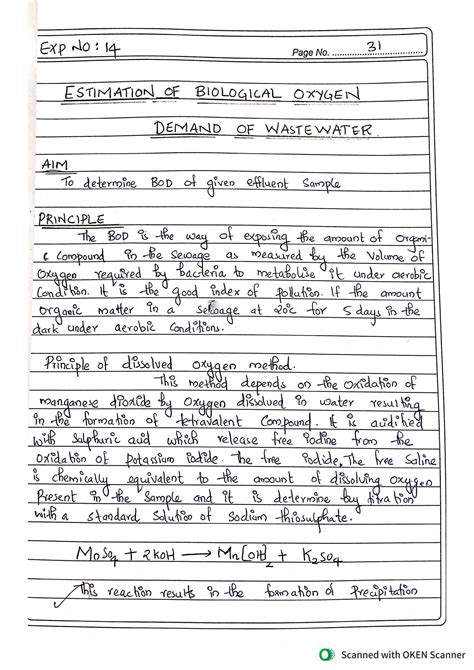 EXP NO: 14
Page No. 31
ESTIMATION OF BIOLOGICAL OXYGEN
DEMAND OF WASTEWATER.
AIM
To determine BOD of given effluent Sample
PRINCIPLE
The BOD is the way of exposing the amount of Organi-
c Compound in the Sewage as measured by the Volume of
Oxygen required by bacteria to metabolise it under aerobic
Condition. It is the good index of pollution. If the amount
Organic matter in a Sewage at 20°c for 5 days in the
dark under aerobic Conditions.
Principle of dissolved Oxygen method.
This method depends on the Oxidation of
manganese dioxide by Oxygen dissolved in water resulting
in the formation of tetravalent Compound. It is acidified
with Sulphuric acid which release free iodine from the
Oxidation of Potassium iodide. The free iodide, The free Saline
is chemically equivalent to the amount of dissolving Oxygen
Present in the Sample and it is determine by titration
with a standard Solution of Sodium thiosulphate.
MnSO4 + 2KOH → Mn[OH]2 + K2SO4
This reaction results in the formation of Precipitation
Scanned with OKEN Scanner